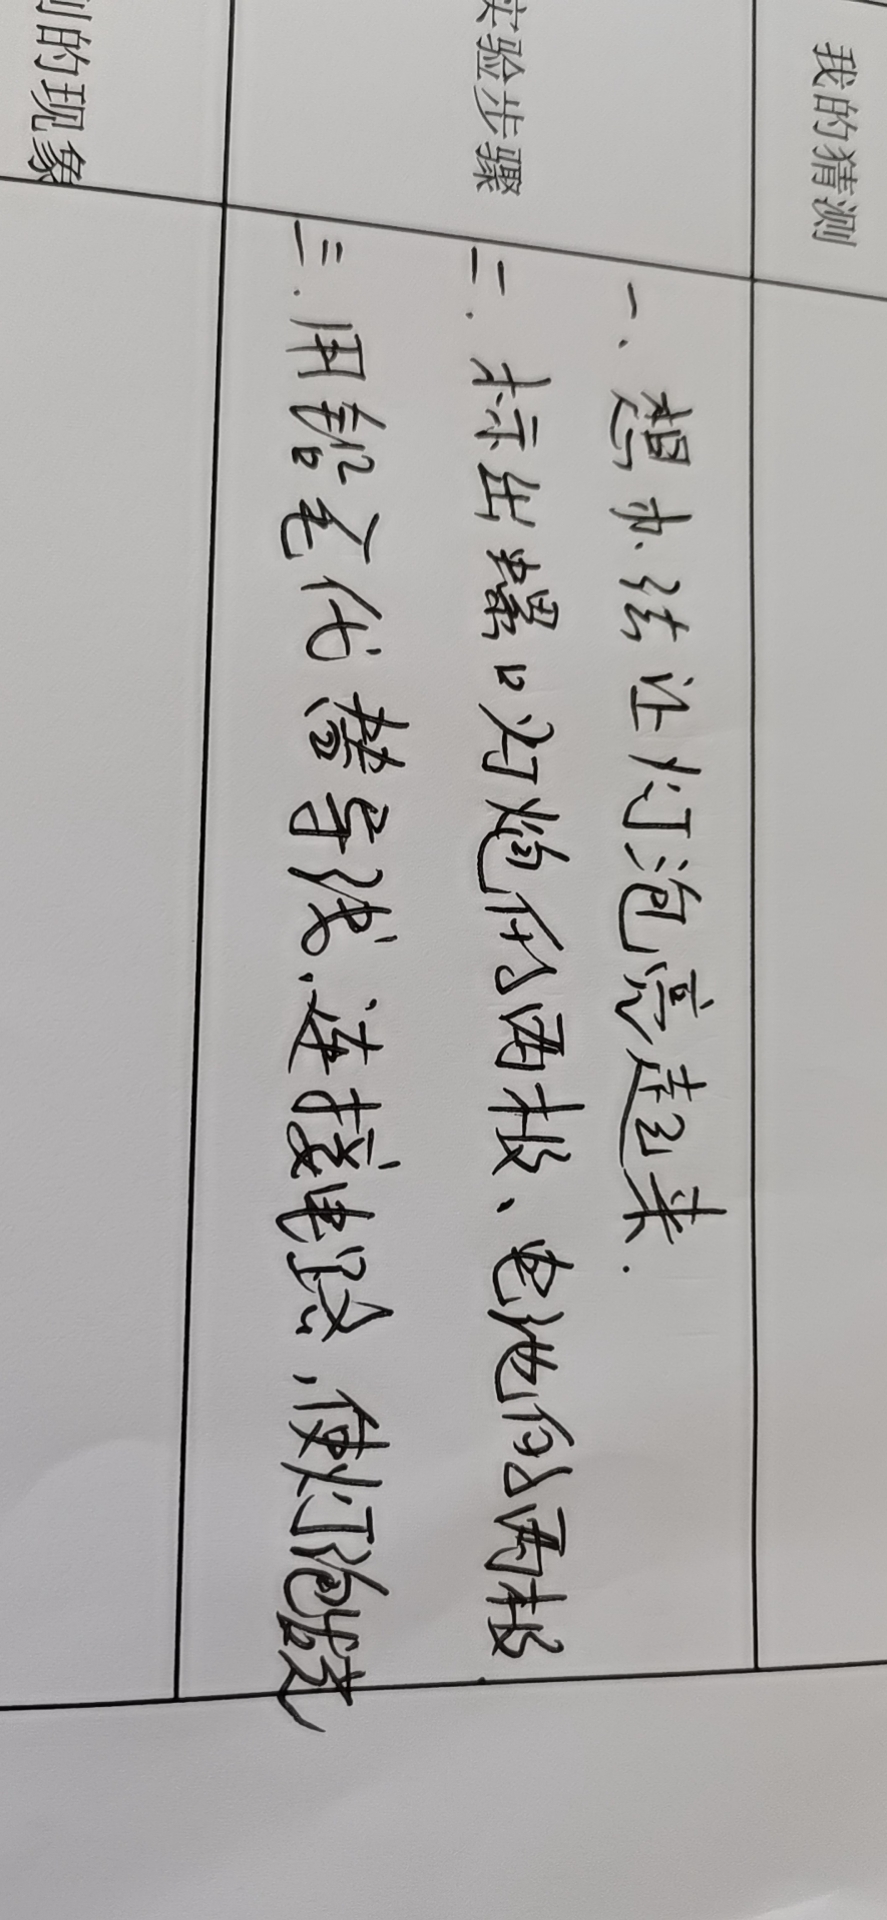 我的猜测
实验步骤
一、想办法让灯泡亮起来.
二.标出螺口灯炮的两极、电池的两极
三.用铅笔代替导线.连接电路,使灯泡发亮
到的现象